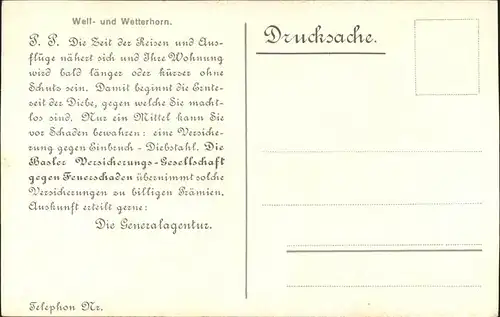 Well- und Wetterhorn.
P. P. Die Zeit der Reisen und Aus-
flüge nähert sich und Ihre Wohnung
wird bald länger oder kürzer ohne
Schutz sein. Damit beginnt die Ernte-
zeit der Diebe, gegen welche Sie macht-
los sind. Nur ein Mittel kann Sie
vor Schaden bewahren: eine Versiche-
rung gegen Einbruch - Diebstahl. Die
Basler Versicherungs-Gesellschaft
gegen Feuerschaden übernimmt solche
Versicherungen zu billigen Prämien.
Auskunft erteilt gerne:
Die Generalagentur.
Telephon Nr.
Drucksache.